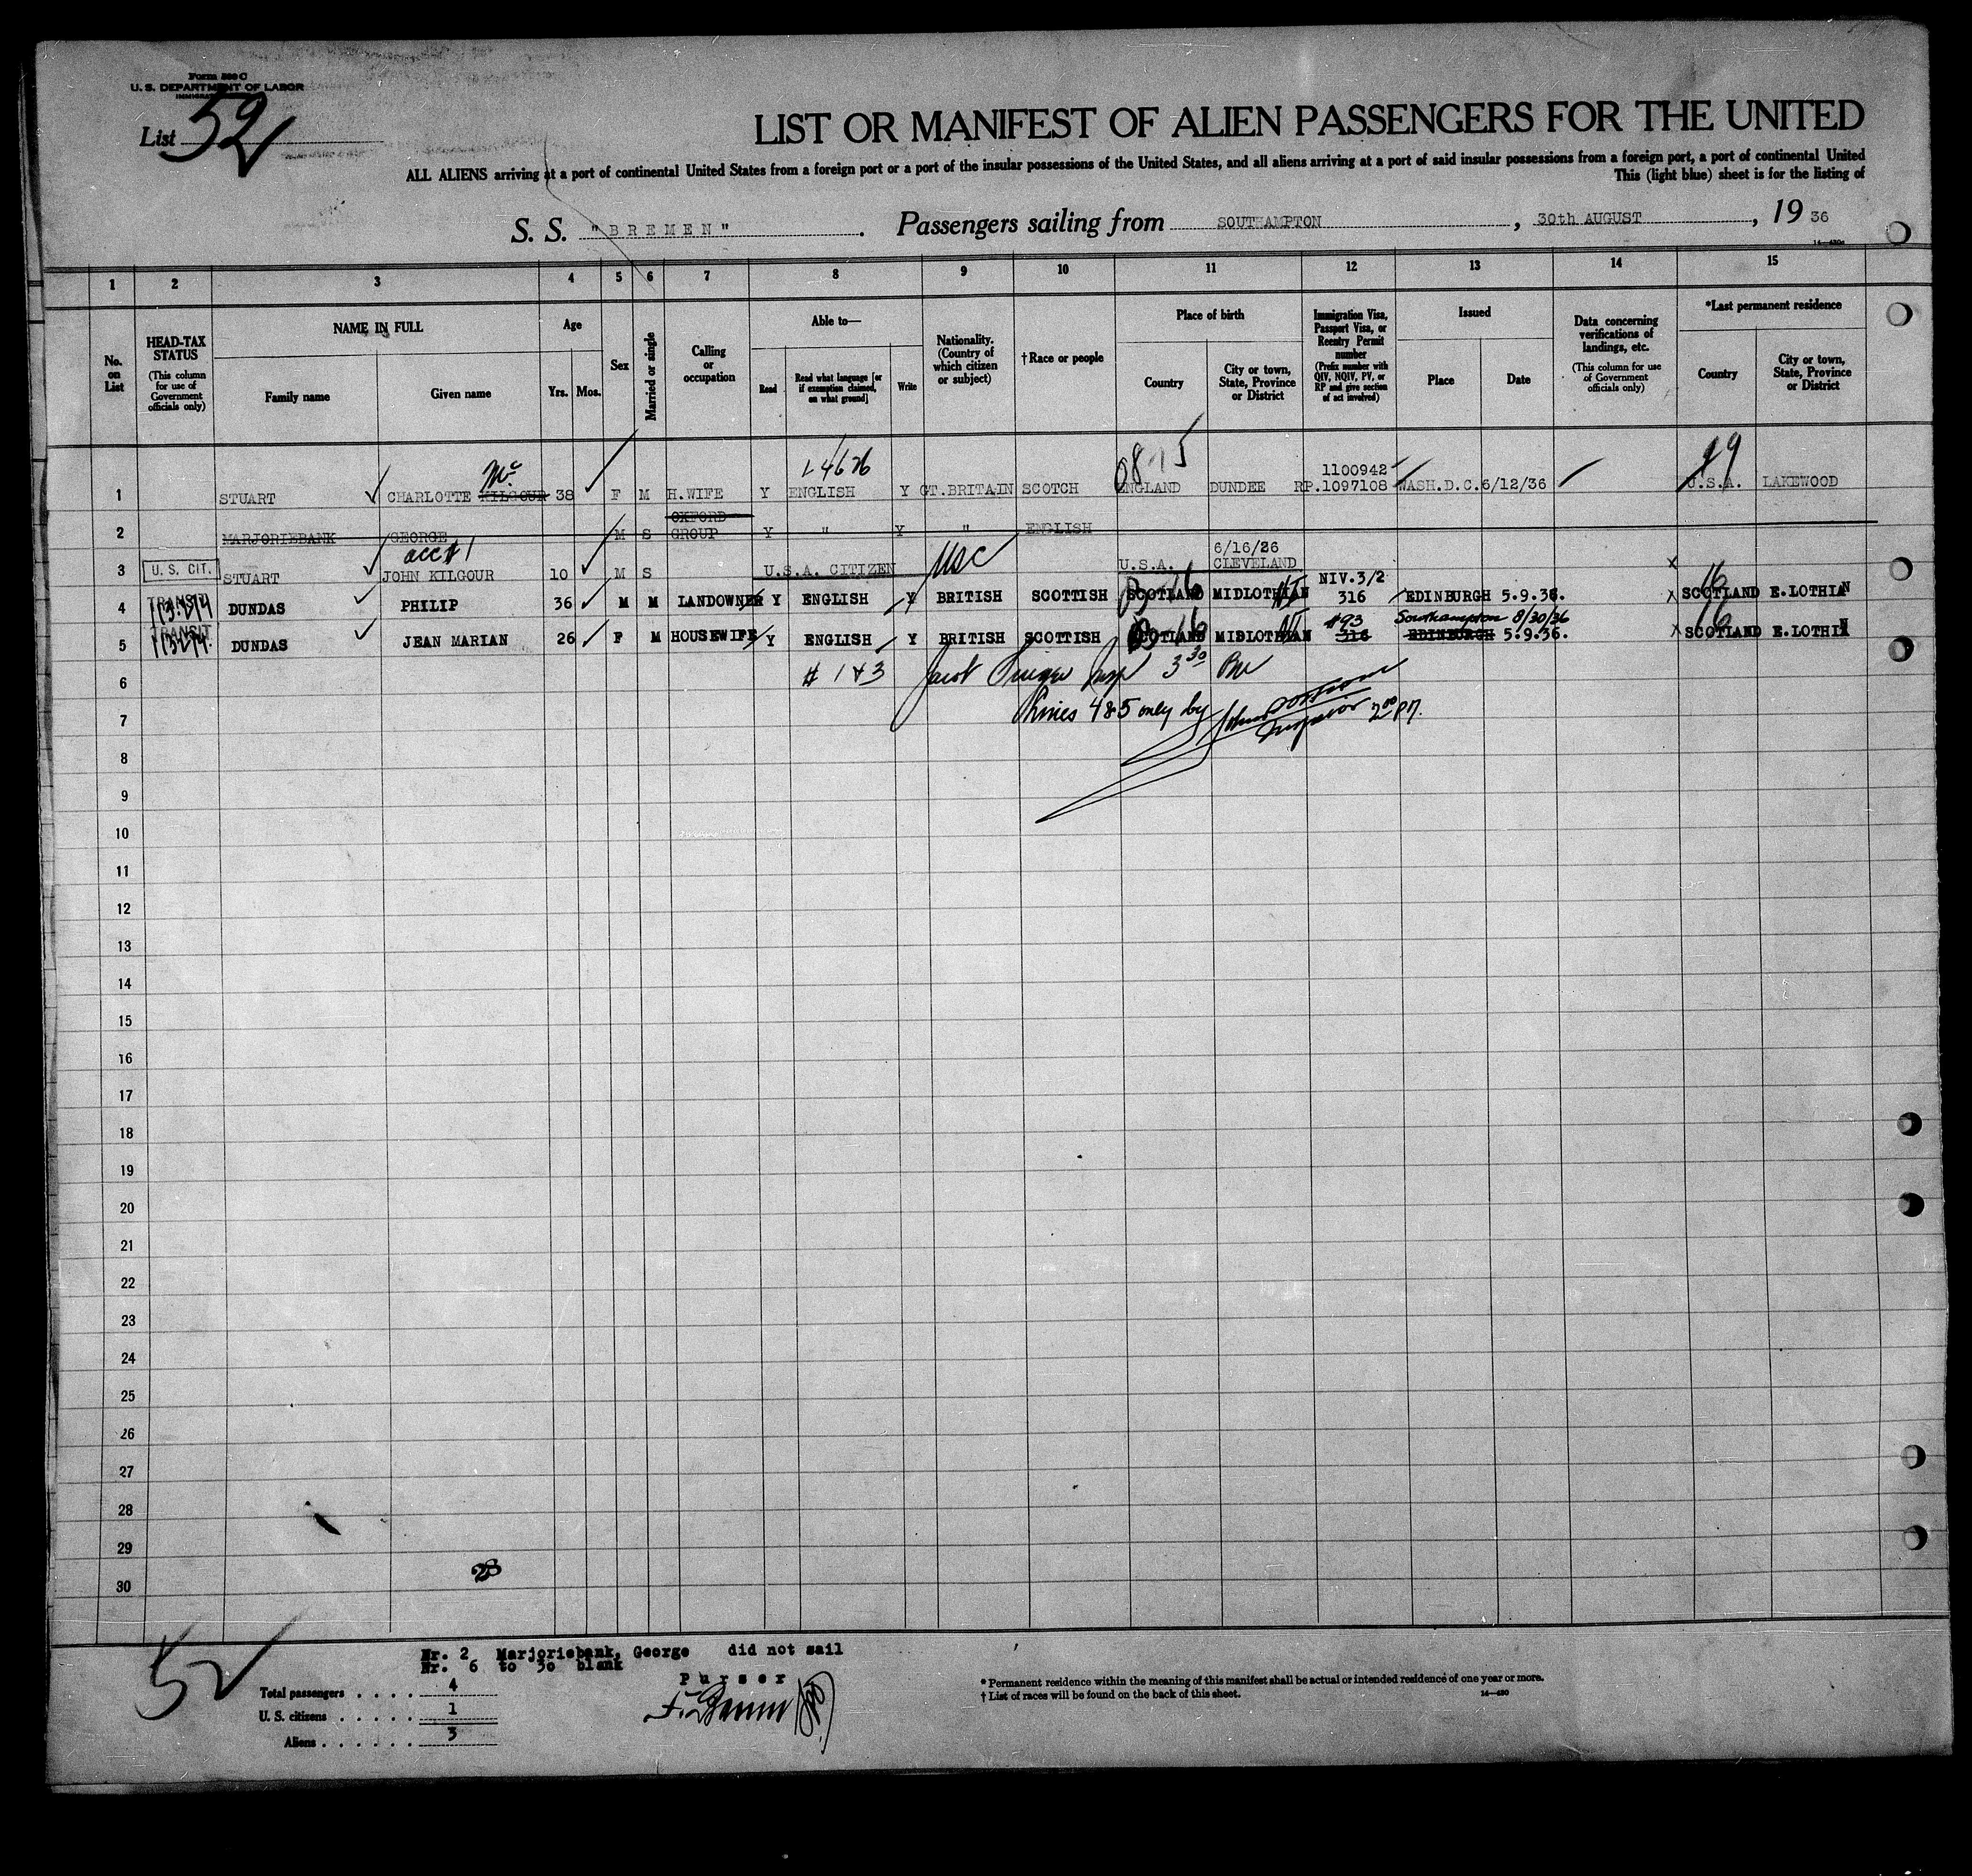 Form 500 C
U. S. DEPARTMENT OF LABOR
List 52
LIST OR MANIFEST OF ALIEN PASSENGERS FOR THE UNITED
ALL ALIENS arriving at a port of continental United States from a foreign port or a port of the insular possessions of the United States, and all aliens arriving at a port of said insular possessions from a foreign port, a port of continental United
This (light blue) sheet is for the listing of
S. S. "BREMEN". Passengers sailing from SOUTHAMPTON, 30th AUGUST, 19 36
1 2 3 4 5 6 7 8 9 10 11 12 13 14 15
No. on List
HEAD-TAX STATUS (This column for use of Government officials only)
NAME IN FULL
Family name
Given name
Age
Yrs. Mos.
Sex
Married or single
Calling or occupation
Able to—
Read
Read what language [or if exemption claimed, on what ground]
Write
Nationality. (Country of which citizen or subject)
†Race or people
Place of birth
Country
City or town, State, Province or District
Immigration Visa, Passport Visa, or Reentry Permit number (Prefix number with QIV, NQIV, PV, or RP and give section of act involved)
Issued
Place
Date
Data concerning verifications of landings, etc. (This column for use of Government officials only)
*Last permanent residence
Country
City or town, State, Province or District
Mc 1100942
1 STUART CHARLOTTE KILGOUR 38 F M H.WIFE Y ENGLISH Y GT.BRITAIN SCOTCH ENGLAND DUNDEE RP.1097108 WASH.D.C. 6/12/36 U.S.A. LAKEWOOD
2 MARJORIEBANK GEORGE M S OXFORD GROUP Y " Y " ENGLISH
acc # 1
3 U. S. CIT. STUART JOHN KILGOUR 10 M S U.S.A. CITIZEN USC U.S.A. 6/16/26 CLEVELAND
4 TRANSIT DUNDAS PHILIP 36 M M LANDOWNER Y ENGLISH Y BRITISH SCOTTISH SCOTLAND MIDLOTHIAN NIV.3/2 316 EDINBURGH 5.9.36. SCOTLAND E.LOTHIAN
#93 Southampton 8/30/36
5 TRANSIT DUNDAS JEAN MARIAN 26 F M HOUSEWIFE Y ENGLISH Y BRITISH SCOTTISH SCOTLAND MIDLOTHIAN 316 EDINBURGH 5.9.36. SCOTLAND E.LOTHIN
6 # 1 & 3
7 4 & 5 only by
8
9
10
11
12
13
14
15
16
17
18
19
20
21
22
23
24
25
26
27
28
29
30
28
52
Nr. 2 Marjoriebank, George did not sail
Nr. 6 to 30 blank
Purser
Total passengers . . . . 4
U. S. citizens . . . . . 1
Aliens . . . . . . 3
* Permanent residence within the meaning of this manifest shall be actual or intended residence of one year or more.
† List of races will be found on the back of this sheet.
14—430